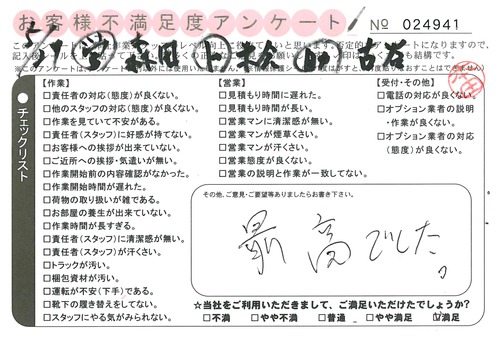 お客様不満足度アンケート
No 024941
チェックリスト
【作業】
□責任者の対応(態度)が良くない。
□他のスタッフの対応(態度)が良くない。
□作業を見ていて不安がある。
□責任者(スタッフ)に好感が持てない。
□お客様への挨拶が出来ていない。
□ご近所への挨拶・気遣いが無い。
□作業開始前の内容確認がなかった。
□作業開始時間が遅れた。
□荷物の取り扱いが雑である。
□お部屋の養生が出来ていない。
□作業時間が長すぎる。
□責任者(スタッフ)に清潔感が無い。
□責任者(スタッフ)が汗くさい。
□トラックが汚い。
□梱包資材が汚い。
□運転が不安(下手)である。
□靴下の履き替えをしてない。
□スタッフにやる気がみられない。
【営業】
□見積もり時間に遅れた。
□見積もり時間が長い。
□営業マンに清潔感が無い。
□営業マンが煙草くさい。
□営業マンが汗くさい。
□営業態度が良くない。
□営業の説明と作業が一致してない。
【受付・その他】
□電話の対応が良くない。
□オプション業者の説明
・作業が良くない。
□オプション業者の対応
(態度)が良くない。
その他、ご意見・ご要望等ありましたらお書き下さい。
最高でした。
☆当社をご利用いただきまして、ご満足いただけたでしょうか?
□不満 □やや不満 □普通 □やや満足 ☑満足